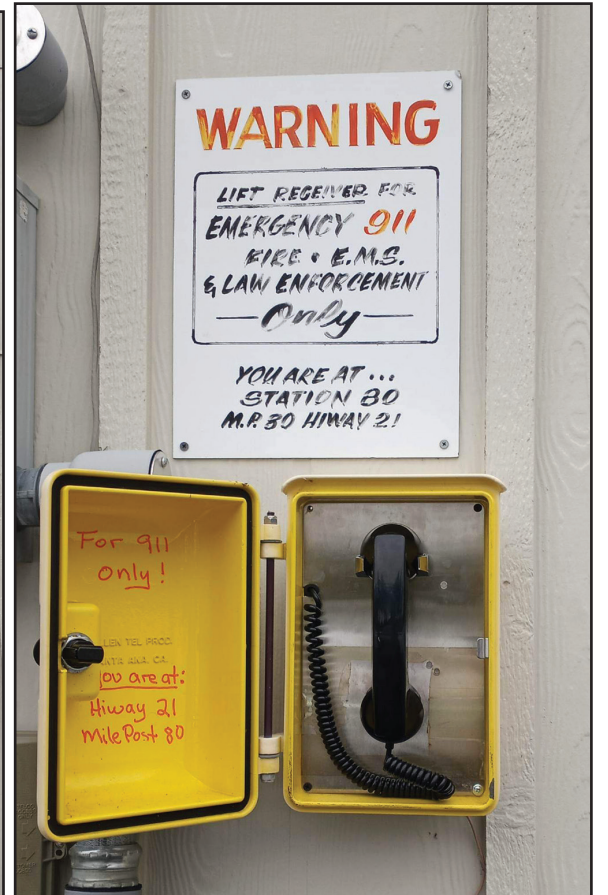 WARNING
LIFT RECEIVER FOR
EMERGENCY 911
FIRE • E.M.S.
& LAW ENFORCEMENT
—Only—
YOU ARE AT...
STATION 80
M.P. 80 HIWAY 21
For 911
only!
LEN TEL PROD.
NTA ANA. CA.
You are at:
Hiway 21
MilePost 80